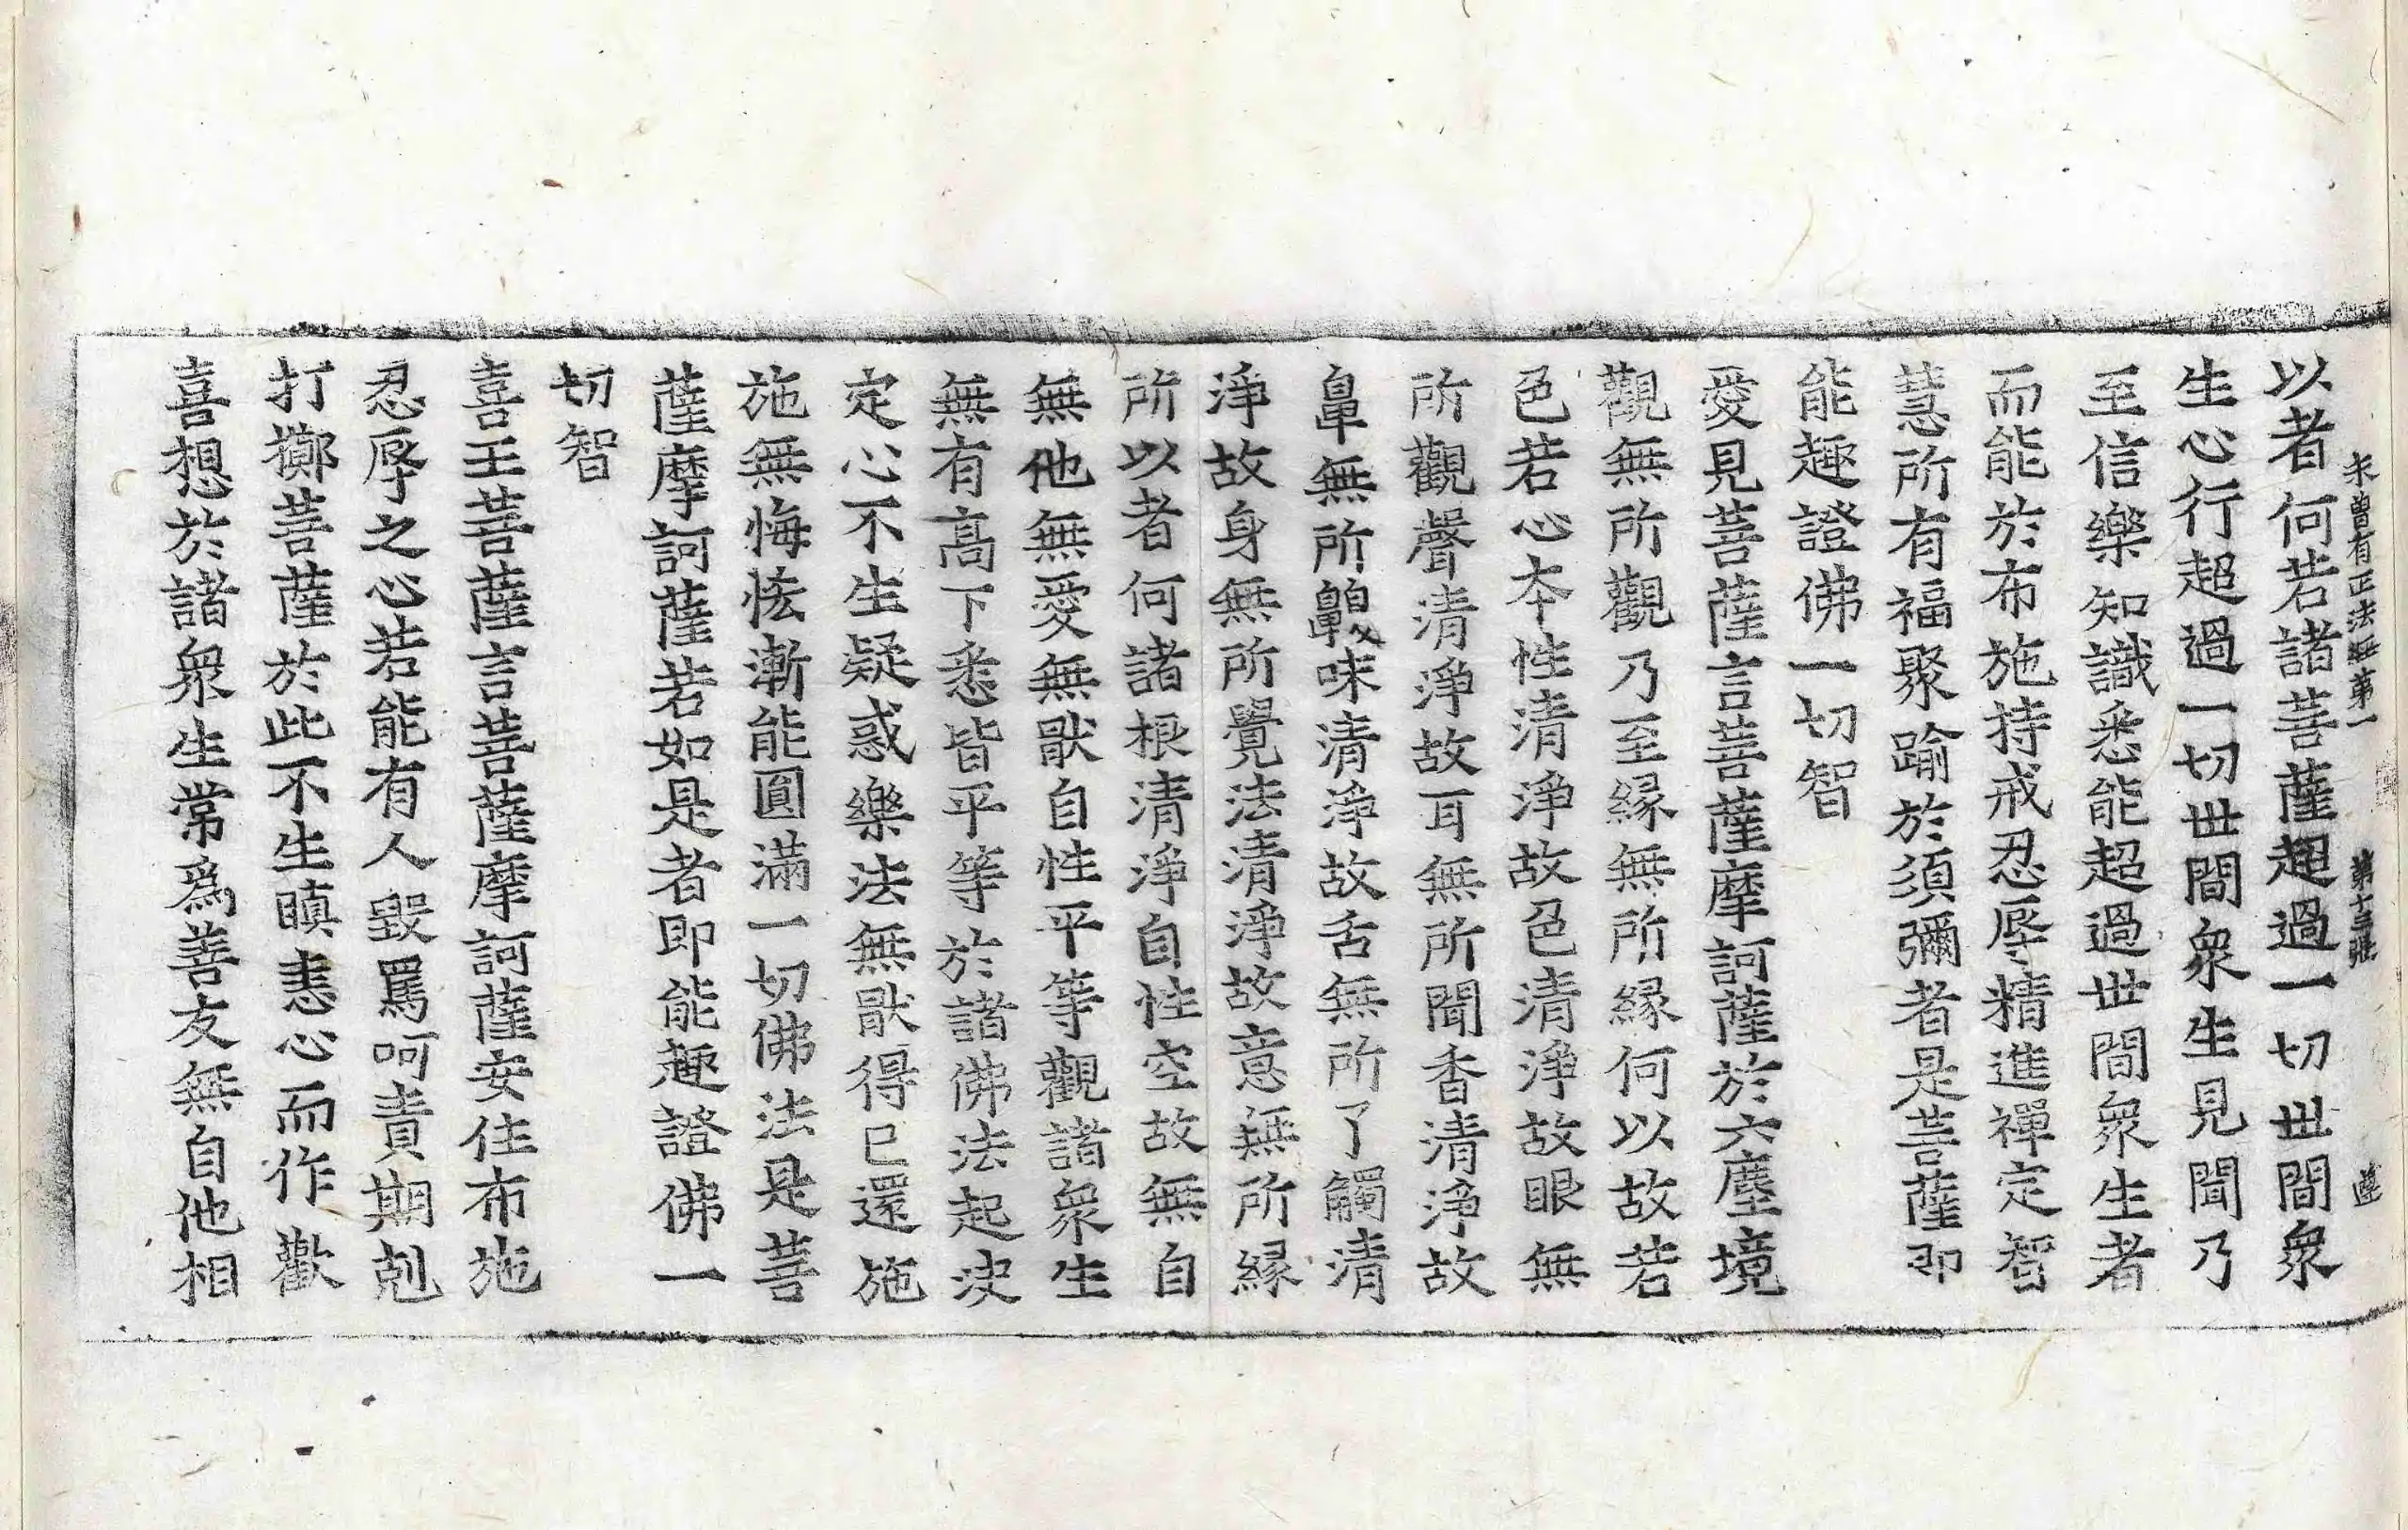 未曾有正法經第一 第十三張 遵
以者何若諸菩薩超過一切世間衆
生心行超過一切世間衆生見聞乃
至信樂知識悉能超過世間衆生者
而能於布施持戒忍辱精進禪定智
慧所有福聚踰於須彌者是菩薩即
能趣證佛一切智
愛見菩薩言菩薩摩訶薩於六塵境
觀無所觀乃至緣無所緣何以故若
色若心本性清淨故色清淨故眼無
所觀聲清淨故耳無所聞香清淨故
鼻無所齅味清淨故舌無所了觸清
淨故身無所覺法清淨故意無所緣
所以者何諸根清淨自性空故無自
無他無愛無猒自性平等觀諸衆生
無有高下悉皆平等於諸佛法起决
定心不生疑惑樂法無猒得已還施
施無悔恡漸能圓滿一切佛法是菩
薩摩訶薩若如是者即能趣證佛一
切智
喜王菩薩言菩薩摩訶薩安住布施
忍辱之心若能有人毀罵呵責期剋
打擲菩薩於此不生瞋恚心而作歡
喜想於諸衆生常爲善友無自他相